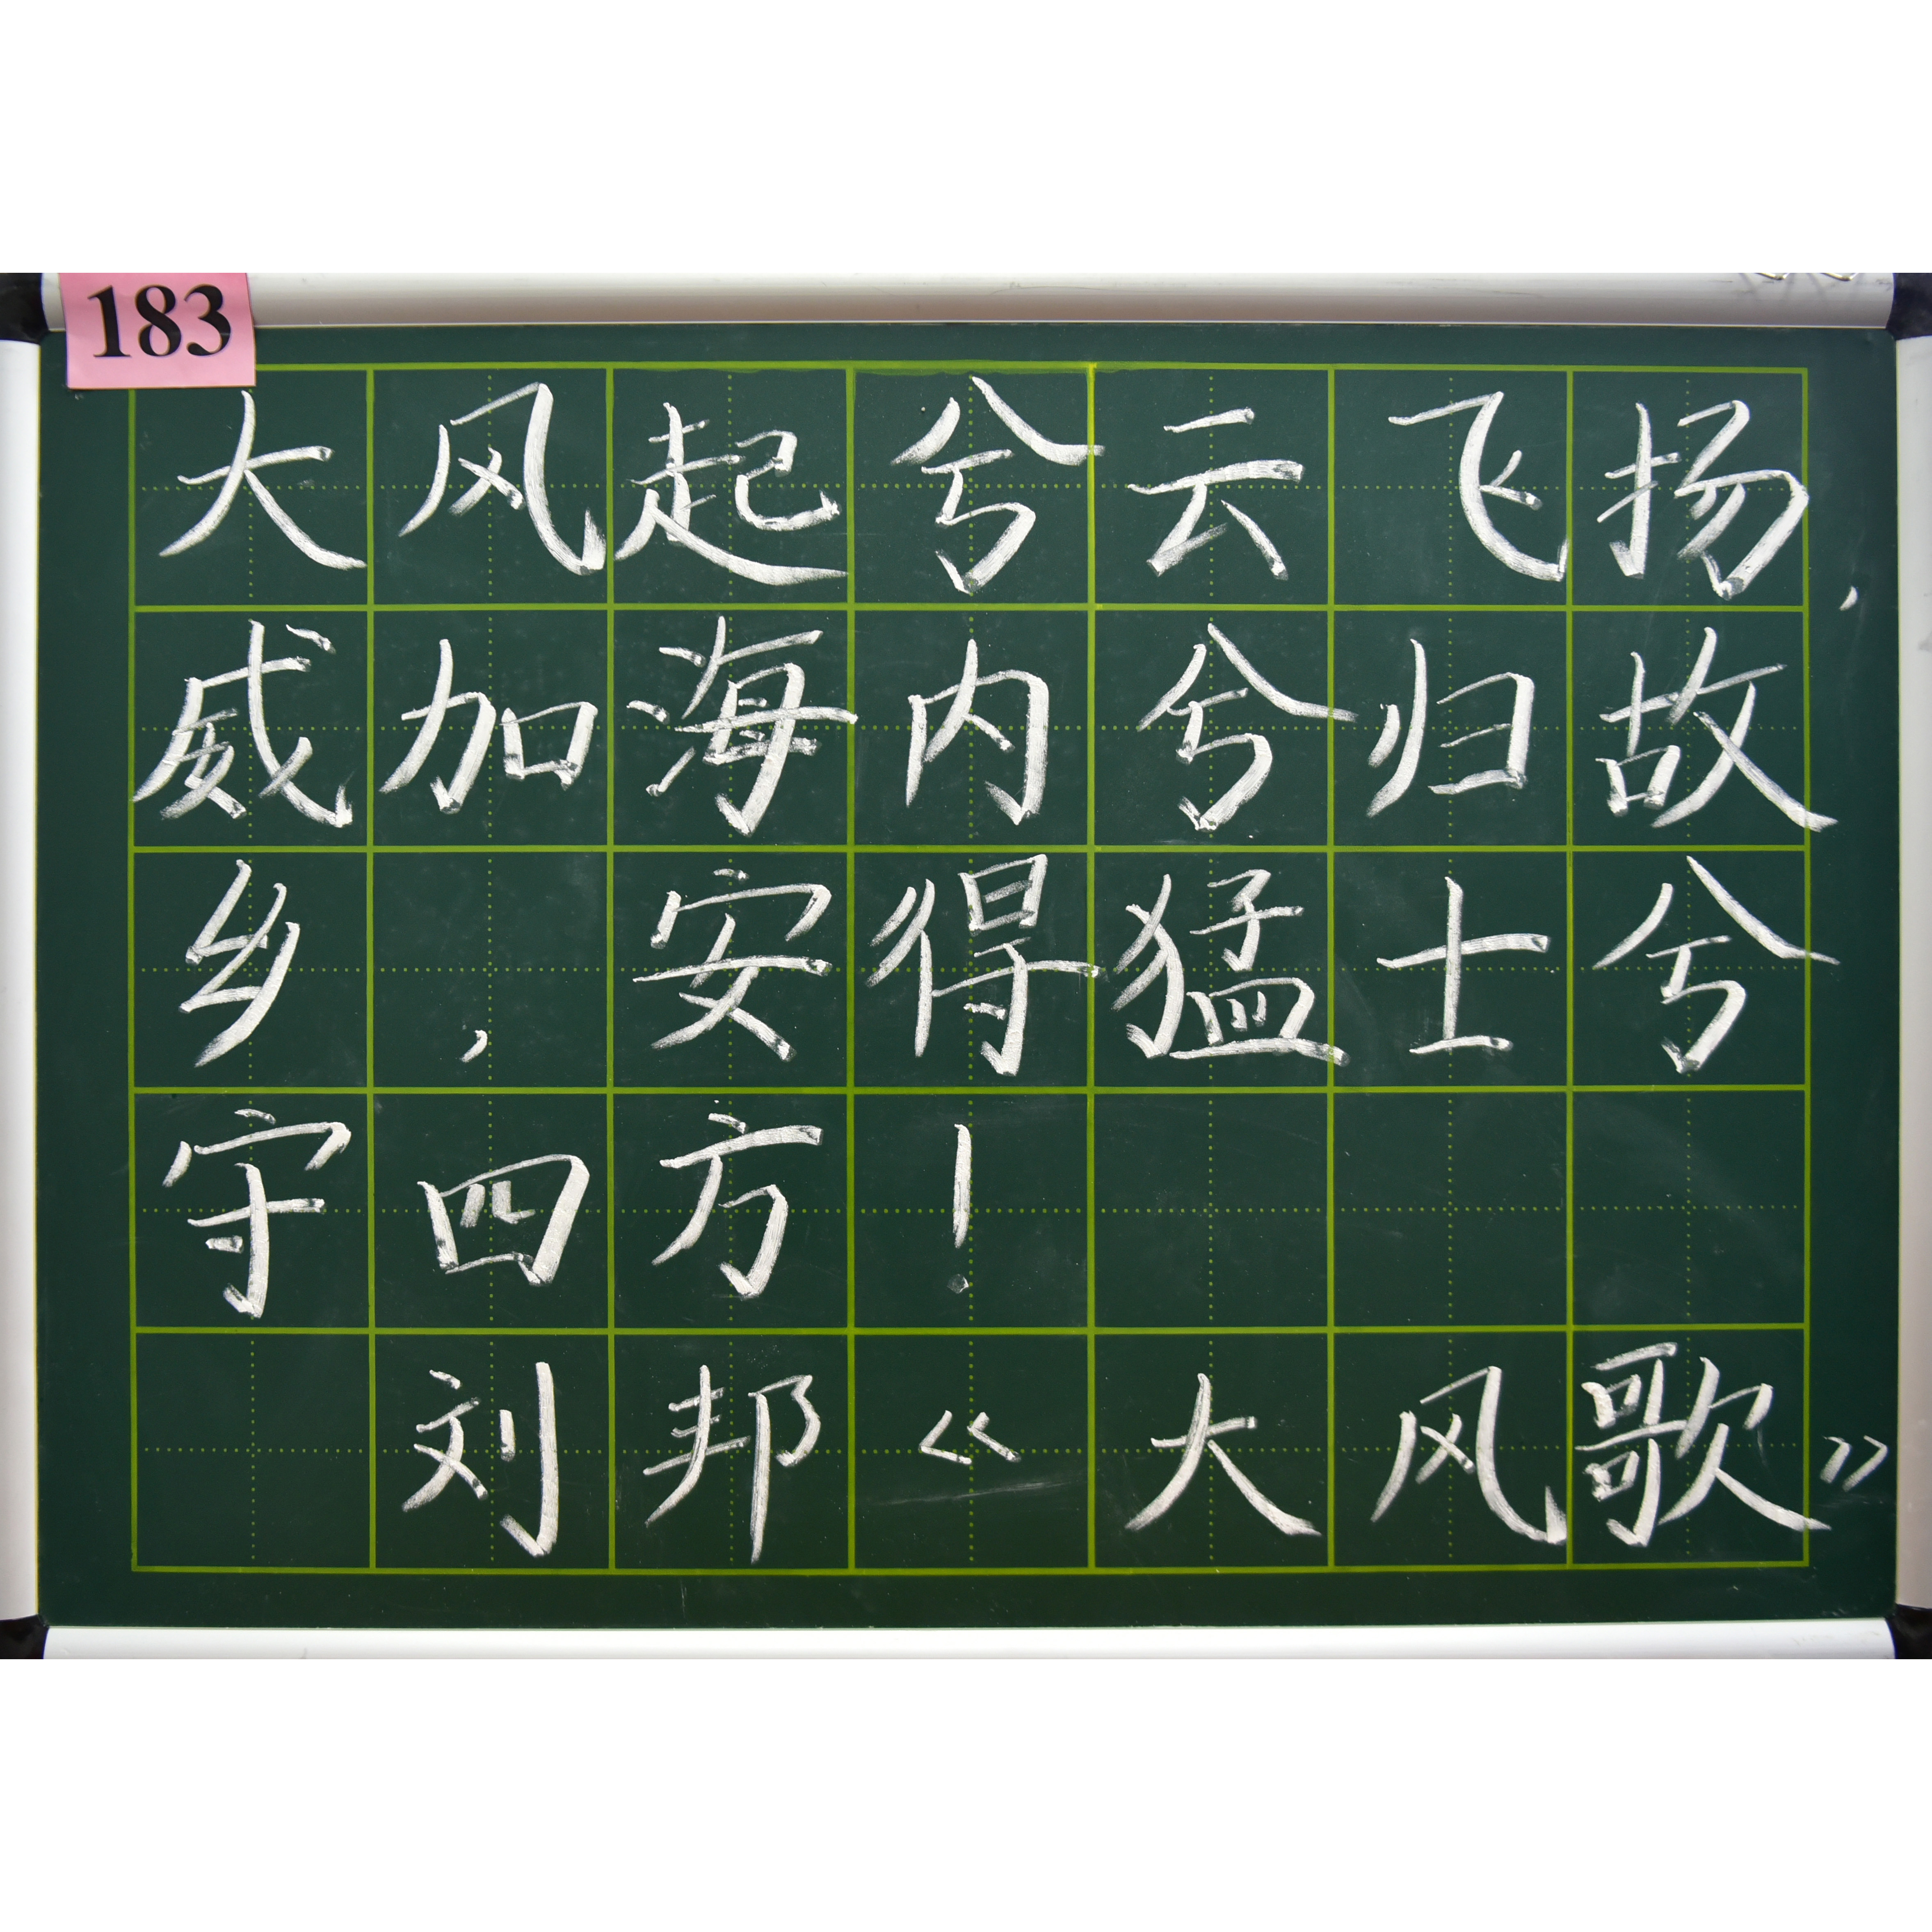 183
大风起兮云飞扬，
威加海内兮归故
乡，安得猛士兮
守四方！
刘邦《大风歌》